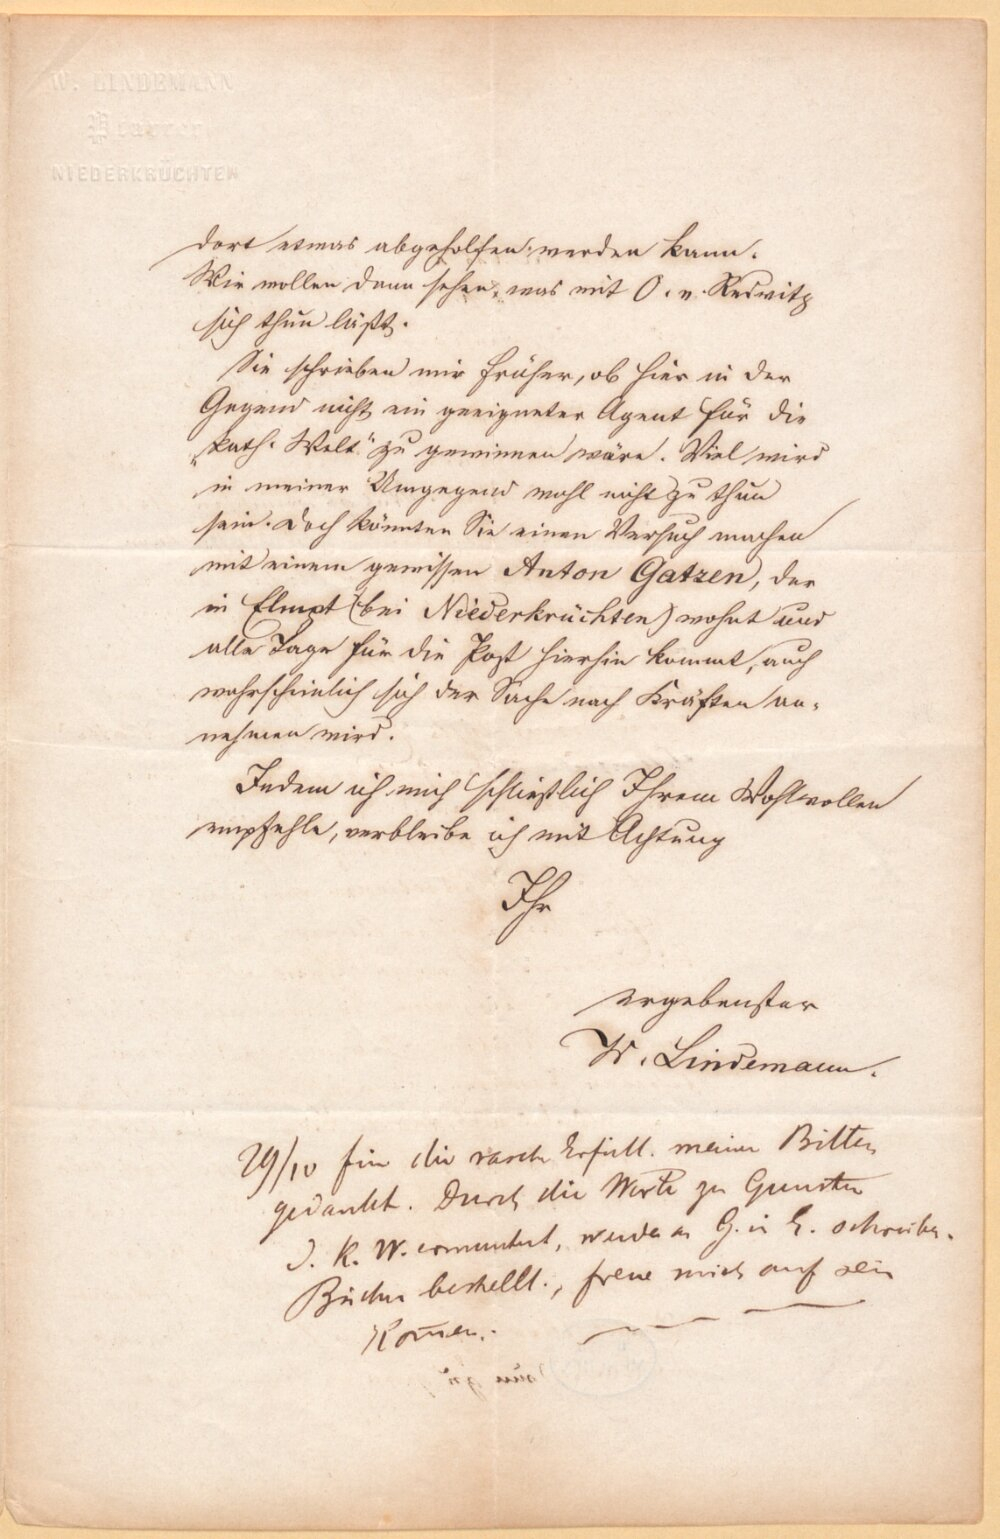 W. LINDEMANN
Pfarrer
NIEDERKRÜCHTEN
dort etwas abgeholfen werden kann.
Wir wollen dann sehen, was mit O. v. Redwitz
sich thun läßt.
Sie schrieben mir früher, ob hier in der
Gegend nicht ein geeigneter Agent für die
„kath. Welt" zu gewinnen wäre. Viel wird
in meiner Umgegend wohl nicht zu thun
sein. Doch könnten Sie einen Versuch machen
mit einem gewissen Anton Gatzen, der
in Elmpt (bei Niederkrüchten) wohnt und
alle Tage für die Post hierhin kommt, auch
wahrscheinlich sich der Sache nach Kräften an-
nehmen wird.
Indem ich mich schließlich Ihrem Wohlwollen
empfehle, verbleibe ich mit Achtung
Ihr
ergebenster
W. Lindemann.
29/10 für die rasche Erfüll. meiner Bitten
gedankt. Durch die Worte zu Gunsten
d. k. W. ermuntert, werde an G. in E. schreiben.
Bücher bestellt., freue mich auf sein
Kom̄en.